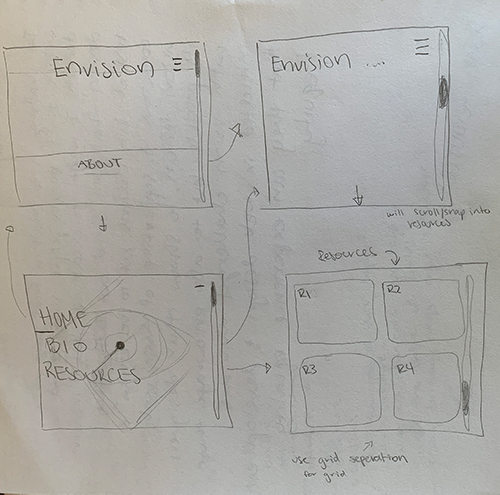 Envision
ABOUT
Envision ....
will scroll/snap into
resources
HOME
BIO
RESOURCES
Resources
R1
R2
R3
R4
use grid seperation
for grid